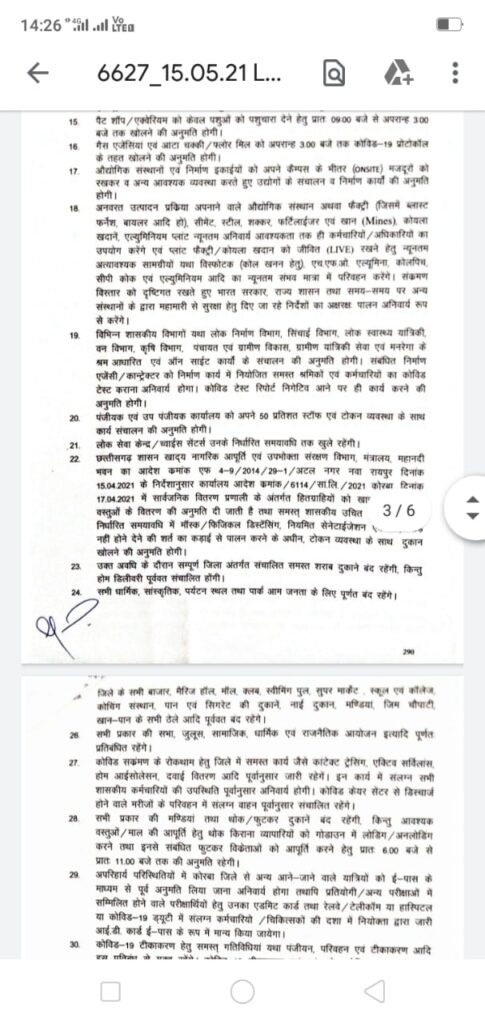 14:26 4G Vo LTE
6627_15.05.21 L...
15. पैट शॉप/एक्वेरियम को केवल पशुओं को पशुचारा देने हेतु प्रातः 09.00 बजे से अपरान्ह 3.00
बजे तक खोलने की अनुमति होगी।
16. गैस एजेंसियां एवं आटा चक्की/फ्लोर मिल को अपरान्ह 3.00 बजे तक कोविड-19 प्रोटोकॉल
के तहत खोलने की अनुमति होगी।
17. औद्योगिक संस्थानों एवं निर्माण इकाईयों को अपने कैम्पस के भीतर (ONSITE) मजदूरों को
रखकर व अन्य आवश्यक व्यवस्था करते हुए उद्योगों के संचालन व निर्माण कार्यों की अनुमति
होगी।
18. अनवरत उत्पादन प्रक्रिया अपनाने वाले औद्योगिक संस्थान अथवा फैक्ट्री (जिसमें ब्लास्ट
फर्नेश, बायलर आदि हो), सीमेंट, स्टील, शक्कर, फर्टिलाईजर एवं खान (Mines), कोयला
खदानें, एल्युमिनियम प्लांट न्यूनतम अनिवार्य आवश्यकता तक ही कर्मचारियों/अधिकारियों का
उपयोग करेंगे एवं प्लांट फैक्ट्री/कोयला खदान को जीवित (LIVE) रखने हेतु न्यूनतम
अत्यावश्यक सामग्रीयों यथा विस्फोटक (कोल खनन हेतु), एच.एफ.ओ. एल्यूमिना, कोलपिच,
सीपी कोक एवं एल्युमिनियम आदि का न्यूनतम संभव मात्रा में परिवहन करेंगे। संक्रमण
विस्तार को दृष्टिगत रखते हुए भारत सरकार, राज्य शासन तथा समय-समय पर अन्य
संस्थानों के द्वारा महामारी से सुरक्षा हेतु दिए जा रहे निर्देशों का अक्षरशः पालन अनिवार्य रूप
से करेंगे।
19. विभिन्न शासकीय विभागों यथा लोक निर्माण विभाग, सिंचाई विभाग, लोक स्वास्थ्य यांत्रिकी,
वन विभाग, कृषि विभाग, पंचायत एवं ग्रामीण विकास, ग्रामीण यांत्रिकी सेवा एवं मनरेगा के
श्रम आधारित एवं ऑन साईट कार्यों के संचालन की अनुमति होगी। संबंधित निर्माण
एजेंसी/कान्ट्रेक्टर को निर्माण कार्य में नियोजित समस्त श्रमिकों एवं कर्मचारियों का कोविड
टेस्ट कराना अनिवार्य होगा। कोविड टेस्ट रिपोर्ट निगेटिव आने पर ही कार्य करने की
अनुमति होगी।
20. पंजीयक एवं उप पंजीयक कार्यालय को अपने 50 प्रतिशत स्टॉफ एवं टोकन व्यवस्था के साथ
कार्य संचालन की अनुमति होगी।
21. लोक सेवा केन्द्र/च्वाईस सेंटर्स उनके निर्धारित समयावधि तक खुले रहेंगी।
22. छत्तीसगढ़ शासन खाद्य नागरिक आपूर्ति एवं उपभोक्ता संरक्षण विभाग, मंत्रालय, महानदी
भवन का आदेश कमांक एफ 4-9/2014/29-1/अटल नगर नवा रायपुर दिनांक
15.04.2021 के निर्देशानुसार कार्यालय आदेश कमांक/6114/सा.लि./2021 कोरबा दिनांक
17.04.2021 में सार्वजनिक वितरण प्रणाली के अंतर्गत हितग्राहियों को खा
वस्तुओं के वितरण की अनुमति दी जाती है तथा समस्त शासकीय उचित
निर्धारित समयावधि में मॉस्क/फिजिकल डिस्टेंसिंग, नियमित सेनेटाईजेशन
नहीं होने देने की शर्त का कड़ाई से पालन करने के अधीन, टोकन व्यवस्था के साथ दुकान
खोलने की अनुमति होगी।
3 / 6
23. उक्त अवधि के दौरान सम्पूर्ण जिला अंतर्गत संचालित समस्त शराब दुकाने बंद रहेंगी, किन्तु
होम डिलीवरी पूर्ववत संचालित होंगी।
24. सभी धार्मिक, सांस्कृतिक, पर्यटन स्थल तथा पार्क आम जनता के लिए पूर्णतः बंद रहेंगे।
290
जिले के सभी बाजार, मैरिज हॉल, मॉल, क्लब, स्वीमिंग पुल, सुपर मार्केट, स्कूल एवं कॉलेज,
कोचिंग संस्थान, पान एवं सिगरेट की दुकानें, नाई दुकान, मण्डियां, जिम चौपाटी,
खान-पान के सभी ठेले आदि पूर्ववत बंद रहेंगे।
26. सभी प्रकार की सभा, जुलूस, सामाजिक, धार्मिक एवं राजनैतिक आयोजन इत्यादि पूर्णतः
प्रतिबंधित रहेंगे।
27. कोविड सक्रमण के रोकथाम हेतु जिले में समस्त कार्य जैसे कांटेक्ट ट्रेसिंग, एक्टिव सर्विलांस,
होम आईसोलेसन, दवाई वितरण आदि पूर्वानुसार जारी रहेंगे। इन कार्य में संलग्न सभी
शासकीय कर्मचारियों की उपस्थिति पूर्वानुसार अनिवार्य होगी। कोविड केयर सेंटर से डिस्चार्ज
होने वाले मरीजों के परिवहन में संलग्न वाहन पूर्वानुसार संचालित रहेंगे।
28. सभी प्रकार की मण्डियां तथा थोक/फुटकर दुकानें बंद रहेंगी, किन्तु आवश्यक
वस्तुओं/माल की आपूर्ति हेतु थोक किराना व्यापारियों को गोडाउन में लोडिंग/अनलोडिंग
करने तथा इनसे संबंधित फुटकर विक्रेताओं को आपूर्ति करने हेतु प्रातः 6.00 बजे से
प्रातः 11.00 बजे तक की अनुमति रहेगी।
29. अपरिहार्य परिस्थितियों में कोरबा जिले से अन्य आने-जाने वाले यात्रियों को ई-पास के
माध्यम से पूर्व अनुमति लिया जाना अनिवार्य होगा तथापि प्रतियोगी/अन्य परीक्षाओं में
सम्मिलित होने वाले परीक्षार्थियों हेतु उनका एडमिट कार्ड तथा रेलवे/टेलीकॉम या हास्पिटल
या कोविड-19 ड्यूटी में संलग्न कर्मचारियों/चिकित्सकों की दशा में नियोक्ता द्वारा जारी
आई.डी. कार्ड ई-पास के रूप में मान्य किया जायेगा।
30. कोविड-19 टीकाकरण हेतु समस्त गतिविधियां यथा पंजीयन, परिवहन एवं टीकाकरण आदि